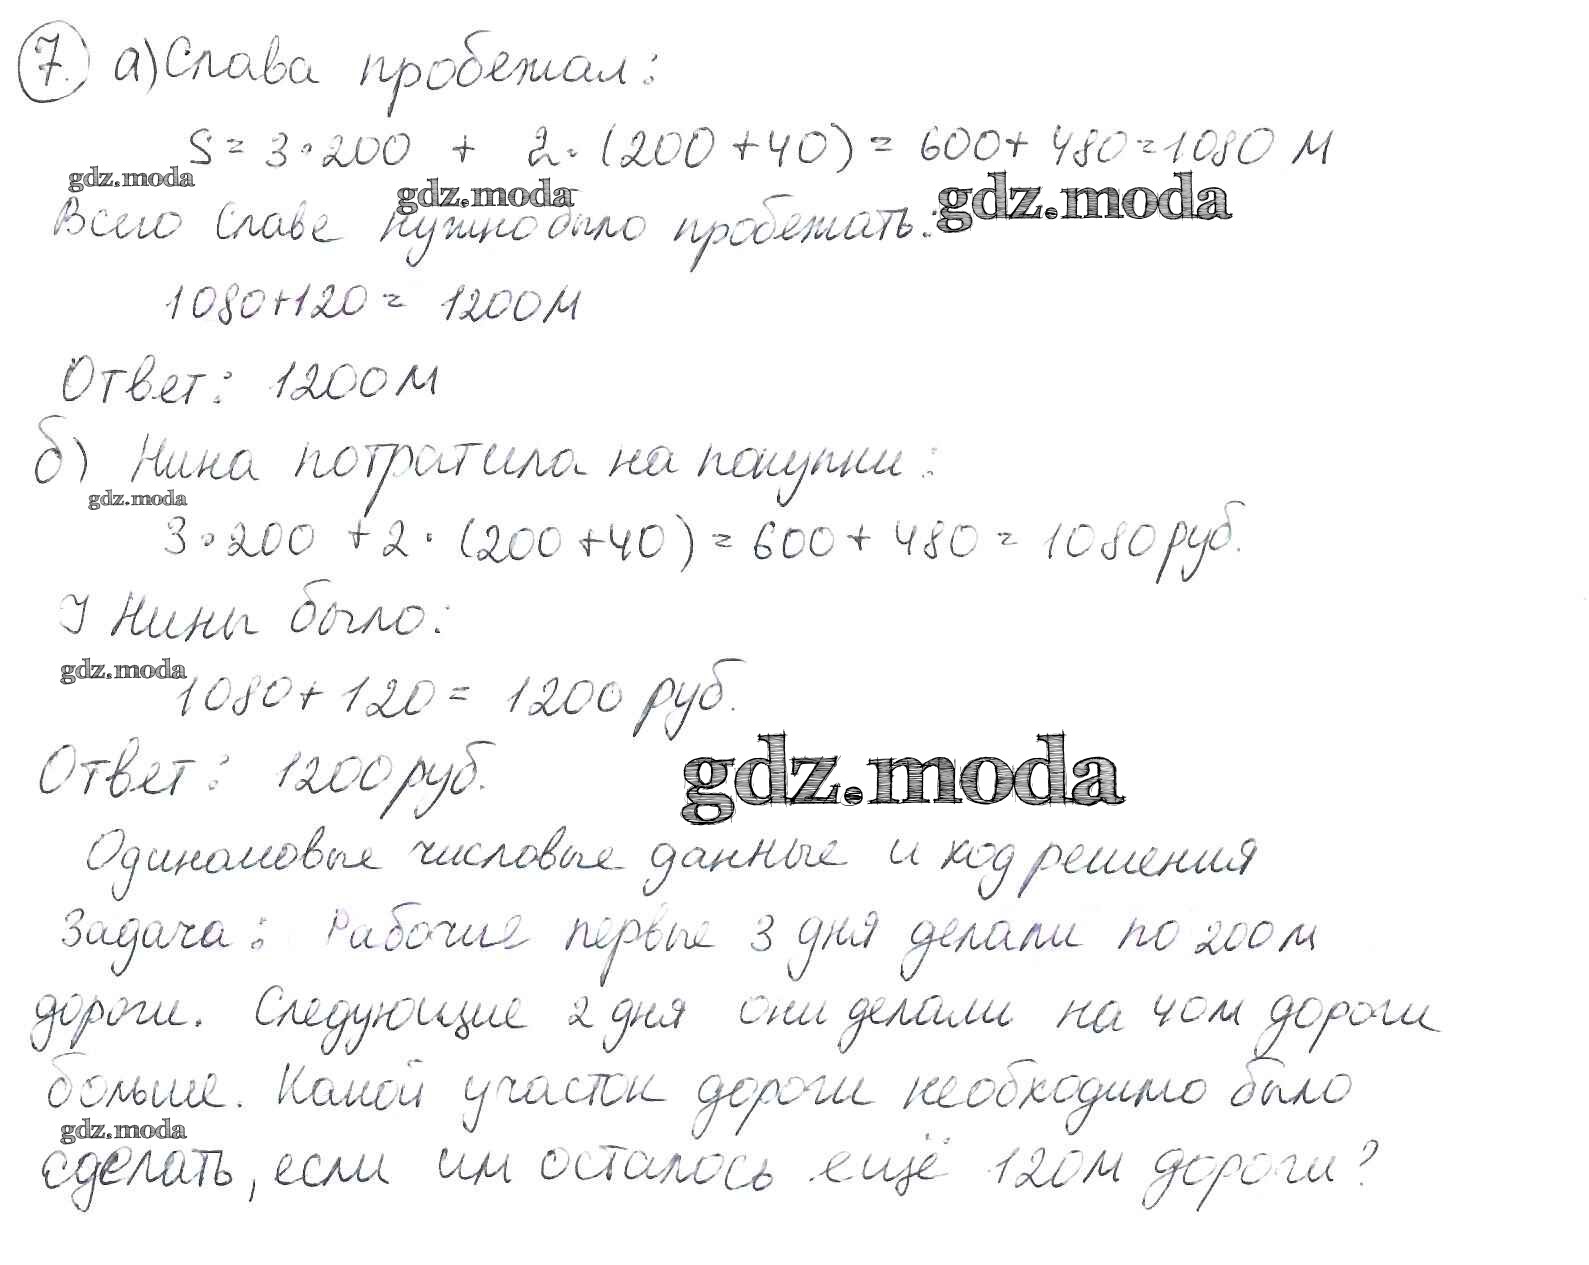 7. а) Слава пробежал:
S = 3·200 + 2·(200+40) = 600+ 480=1080 м
gdz.moda gdz.moda gdz.moda
Всего Славе нужно было пробежать:
1080+120= 1200м
Ответ: 1200м
б) Нина потратила на покупки:
gdz.moda
3·200 +2·(200+40)=600+480= 1080руб.
У Нины было:
gdz.moda
1080+120= 1200 руб.
Ответ: 1200руб.
gdz.moda
Одинаковые числовые данные и ход решения
Задача: Рабочие первые 3 дня делали по 200м
дороги. Следующие 2 дня они делали на 40м дороги
больше. Какой участок дороги необходимо было
gdz.moda
сделать, если им осталось ещё 120м дороги?